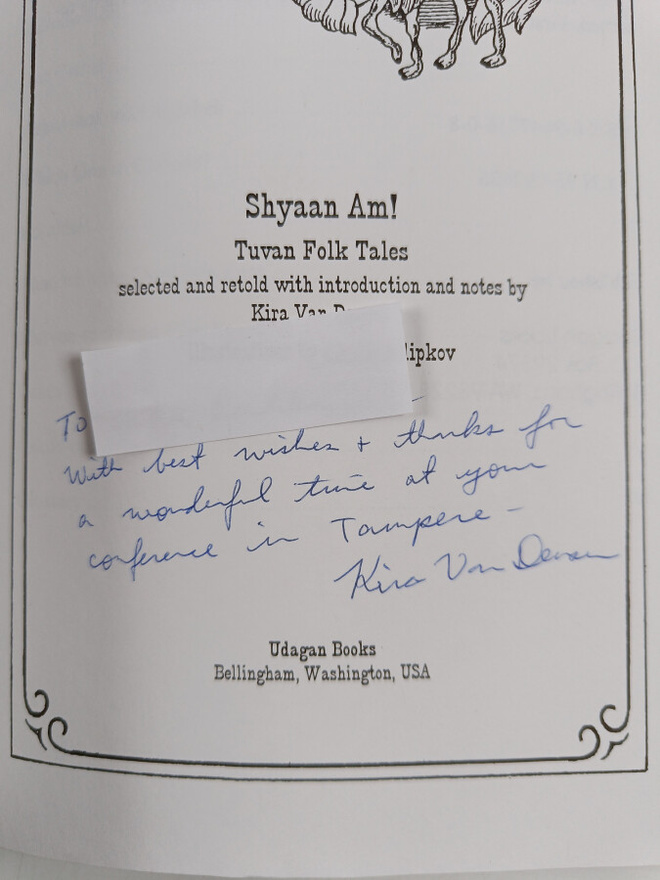 Shyaan Am!
Tuvan Folk Tales
selected and retold with introduction and notes by
Kira Van
lipkov
To
With best wishes + thanks for
a wonderful time at your
conference in Tampere –
Kira Van Deusen
Udagan Books
Bellingham, Washington, USA